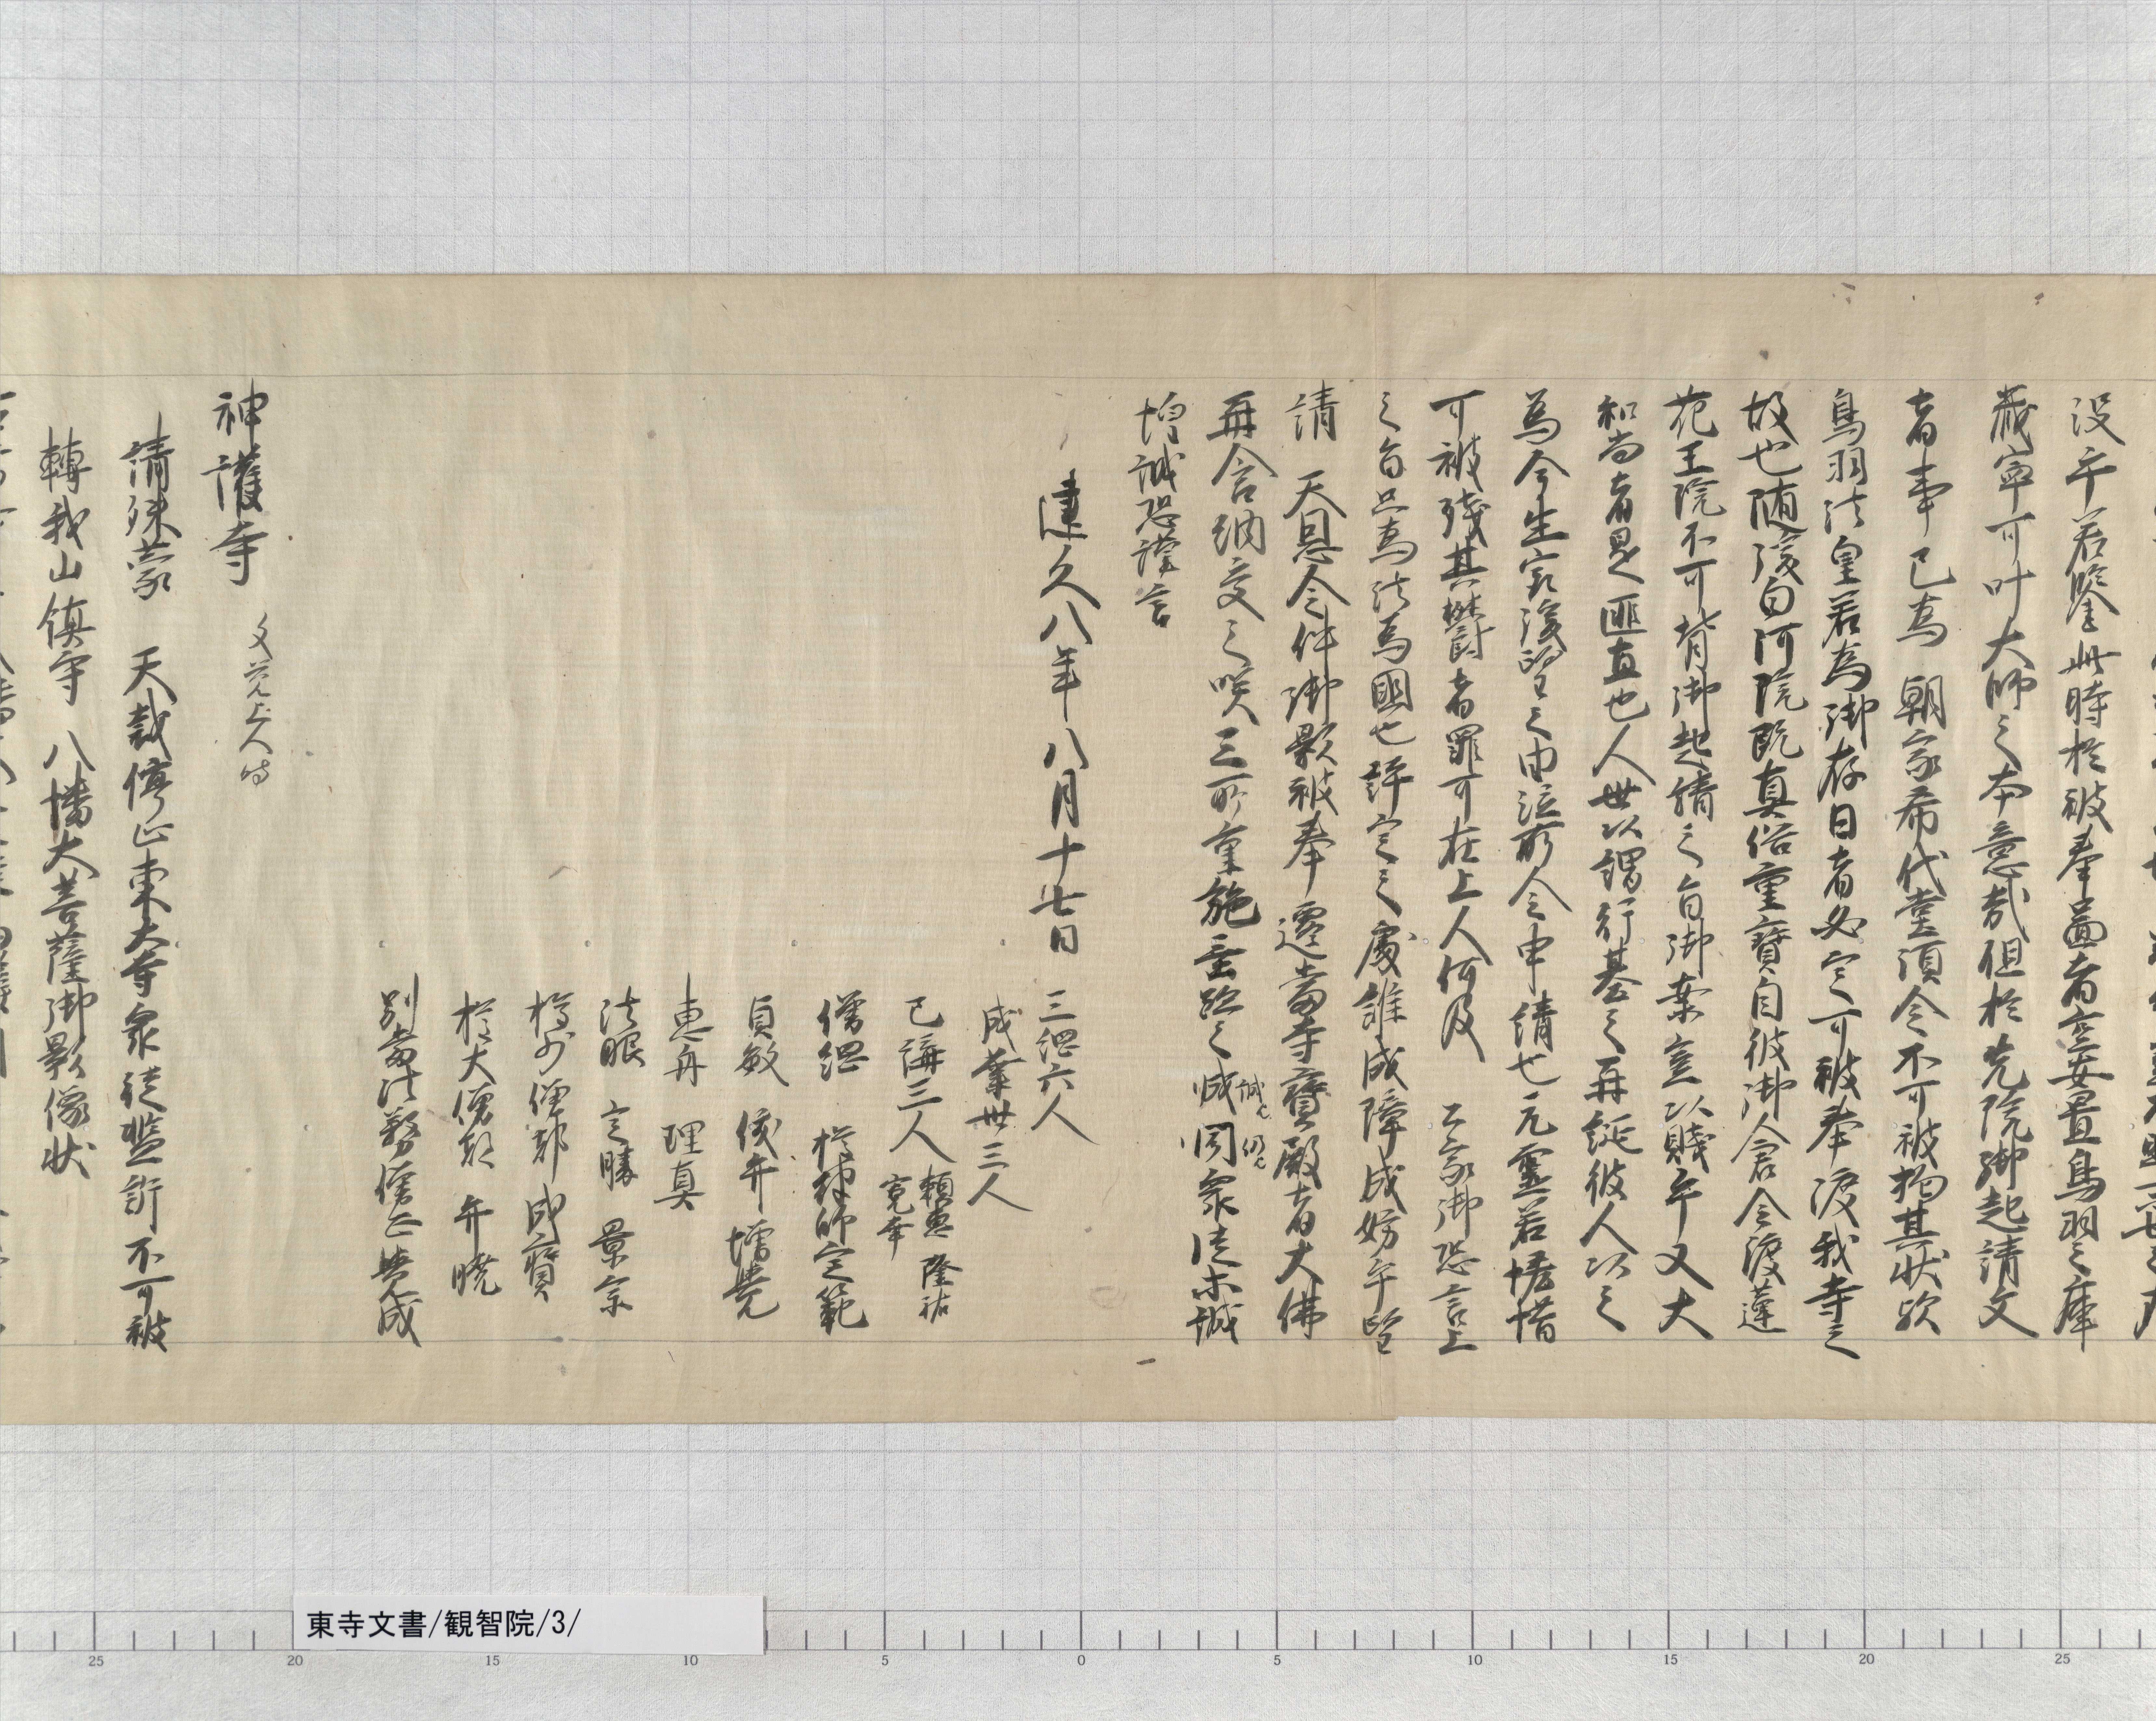 没乎若鑒此時於被奉啚者豈安置鳥羽之庫
蔵寧可叶大師之本意哉但於先院御起請文
者事已為 朝家希代堂須令不可被拘其状歟
鳥羽法皇若為御存日者必定可被奉渡我寺之
故也随後白河院既真俗重寶自彼御倉令渡蓮
花王院不可背御起請之旨御案豈以賤乎又大
和尚者是匪直也人世以謂行基之再誕彼人以之
為今生家後望之由泣所令申請也元靈若慳惜
可被残其欝者罪可在上人何及 公家御恐言上
之旨只為法為國也評定之處誰成障成妨乎望
請 天恩令件御影被奉遷當寺寶殿者大佛
再含納受之咲三所重施垂跡之威因衆徒等誠
惶誠恐謹言
建久八年八月十七日 三綱六人
成業卅三人
已講三人 頼恵 隆祐 寛幸
僧綱 権律師定範
貞敏 俊弁 增覚
恵舟 理真
法眼 定勝 景宗
権少僧都 成寶
権大僧都 弁暁
別當法務僧正覚成
神護寺 文覚上人時
請殊蒙 天裁停止東大寺衆徒濫訴不可被
轉我山鎮守 八幡大菩薩御影像状
東寺文書/観智院/3/
25 20 15 10 5 0 5 10 15 20 25